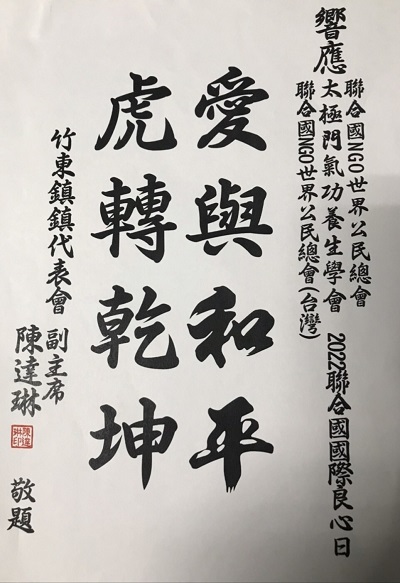 響應
聯合國NGO世界公民總會
太極門氣功養生學會
聯合國NGO世界公民總會(台灣)
2022聯合國國際良心日
愛與和平
虎轉乾坤
竹東鎮鎮代表會
副主席
陳達琳
敬題